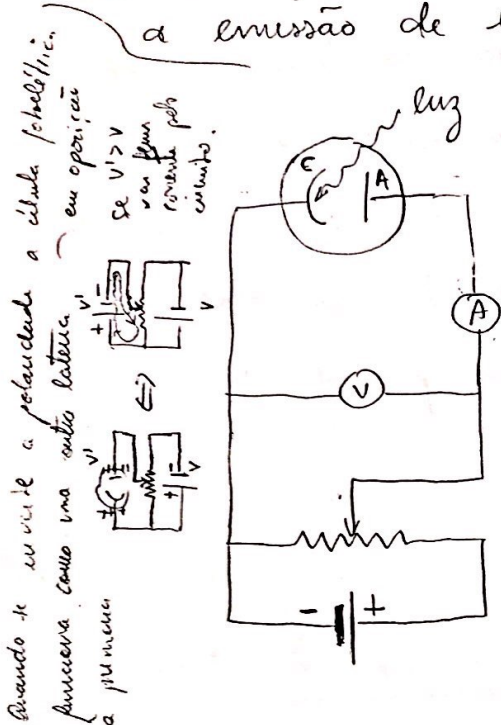 a emissão de
luz
C
A
A
V
- +
Quando se inverte a polaridade a célula fotoelétric.
funciona como uma outra bateria em oposição
a primeira
V'
+ -
V
⇔
V'
+ -
V
se V' > V
vai fluir
corrente pelo
circuito.